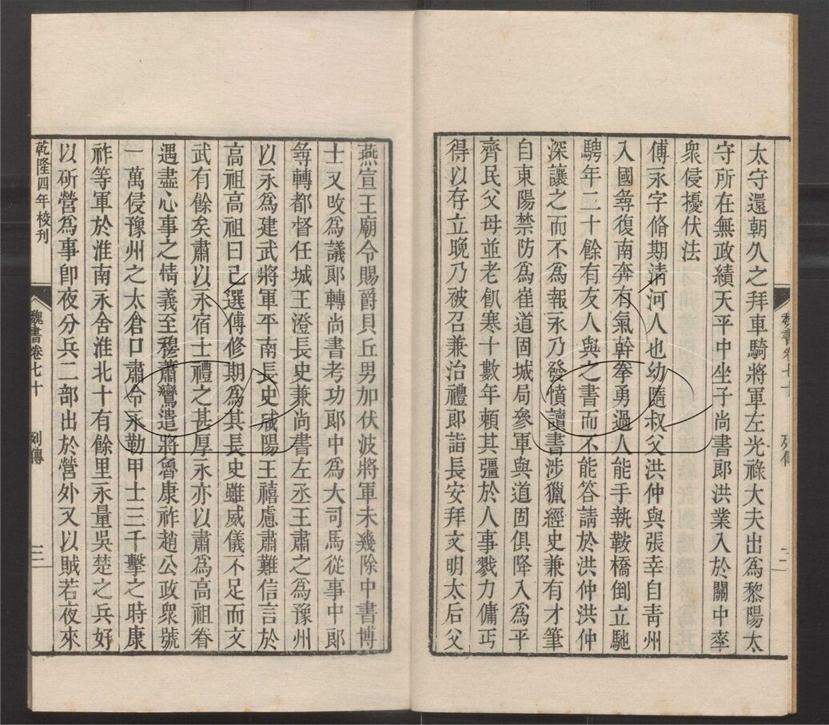 太守還朝久之拜車騎將軍左光祿大夫出爲黎陽太
守所在無政績天平中坐子尚書郎洪業入於關中率
衆侵擾伏法
傅永字脩期清河人也幼隨叔父洪仲與張幸自青州
入國尋復南奔有氣幹拳勇過人能手執鞍橋倒立馳
騁年二十餘有友人與之書而不能答請於洪仲洪仲
深讓之而不爲報永乃發憤讀書涉獵經史兼有才筆
自東陽禁防爲崔道固城局參軍與道固俱降入爲平
齊民父母並老飢寒十數年賴其彊於人事戮力傭丐
得以存立晚乃被召兼治禮郎詣長安拜文明太后父
魏書卷七十 列傳 二
燕宣王廟令賜爵貝丘男加伏波將軍未幾除中書博
士又改爲議郎轉尚書考功郎中爲大司馬從事中郎
尋轉都督任城王澄長史兼尚書左丞王肅之爲豫州
以永爲建武將軍平南長史咸陽王禧慮肅難信言於
高祖高祖曰已選傅修期爲其長史雖威儀不足而文
武有餘矣肅以永宿士禮之甚厚永亦以肅爲高祖眷
遇盡心事之情義至穆蕭鸞遣將魯康祚趙公政衆號
一萬侵豫州之太倉口肅令永勒甲士三千擊之時康
祚等軍於淮南永舍淮北十有餘里永量吳楚之兵好
以斫營爲事卽夜分兵二部出於營外又以賊若夜來
乾隆四年校刊
魏書卷七十 列傳 三